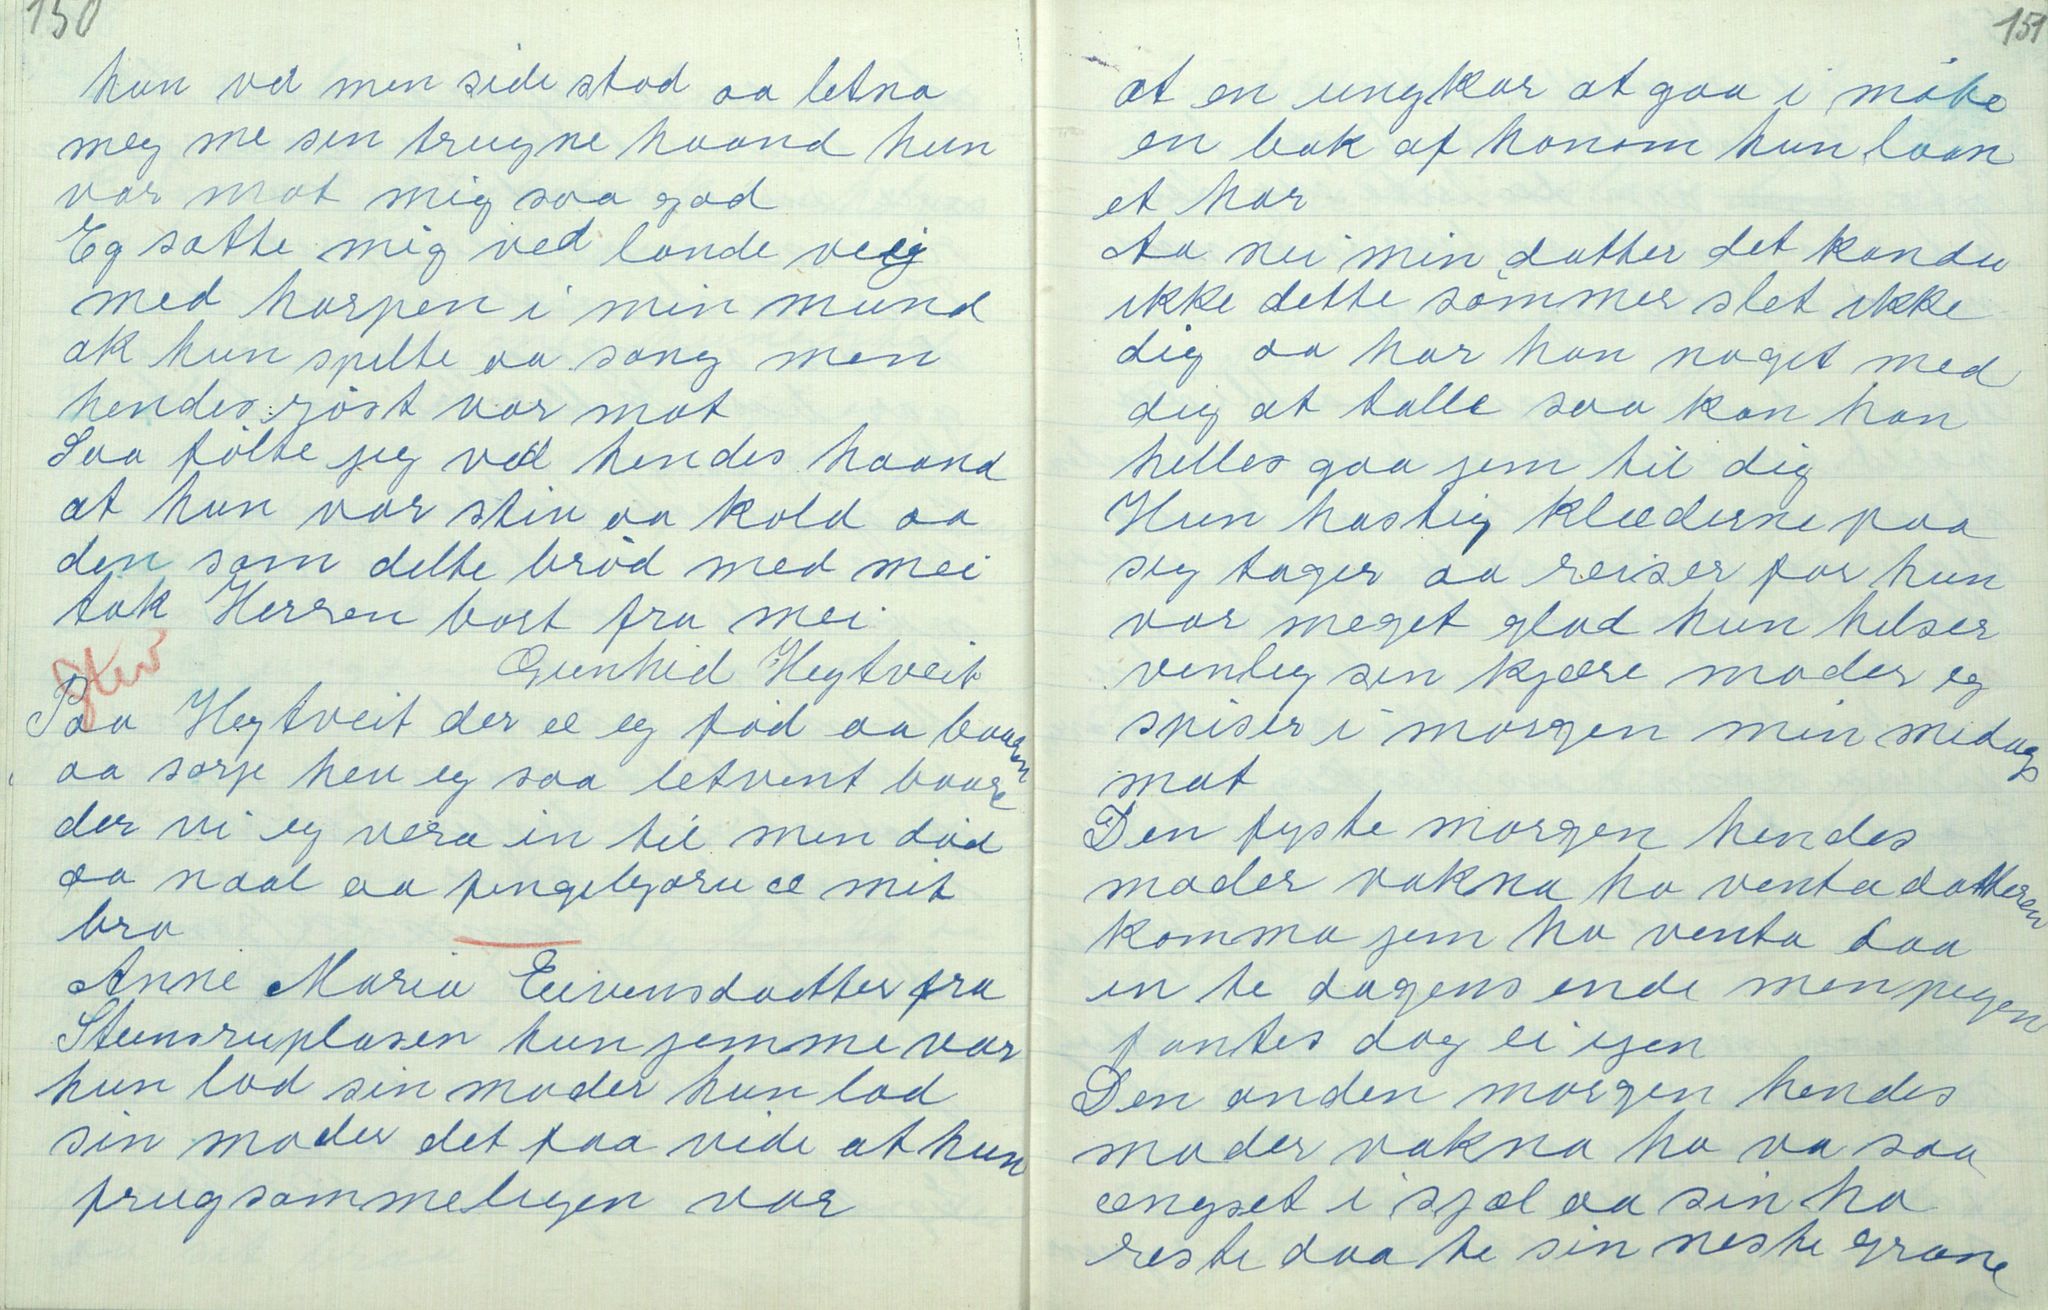 150
hun ved men side stod aa letna
meg me sin trugne haand hun
var mot mig saa god
Eg satte mig ved lande veig
med harpen i min mund
ak hun spelte aa sang men
hendes röst var mat
Saa fölte jeg ved hendes haand
at hun var stiv aa kold aa
den som delte bröd med mei
tok Herren bort fra mei
Gunhid Hegtveit
Paa Hegtveit der æ eg föd aa baaren
aa sorje hev eg saa letvent baare
der vi eg væra in til men död
aa naal aa fengebjøru æ mit
brø
Anne Maria Eivensdatter fra
Steensruplasen hun jemme var
hun lod sin moder hun lod
sin moder det faa vide at hun
frugsommeligen var
151
at en ungkar at gaa i möte
en bak af honom hun laan
et har
Aa nei min datter det kandu
ikke dette sömmer slet ikke
dig aa har han noget med
dig at talle saa kan han
helles gaa jem til dig
Hun hastig klæderne paa
sig tager aa reiser for hun
var meget glad hun helser
venlig sin kjære moder eg
spiser i morgen min midags
mat
Den fyste morgen hendes
moder vakna ho venta datteren
komma jem ho venta daa
in te dagens ende men pigen
fantes dog ei igen
Den anden morgen hendes
moder vakna ho va saa
ængset i sjæl aa sin ho
reste daa te sin neste grane